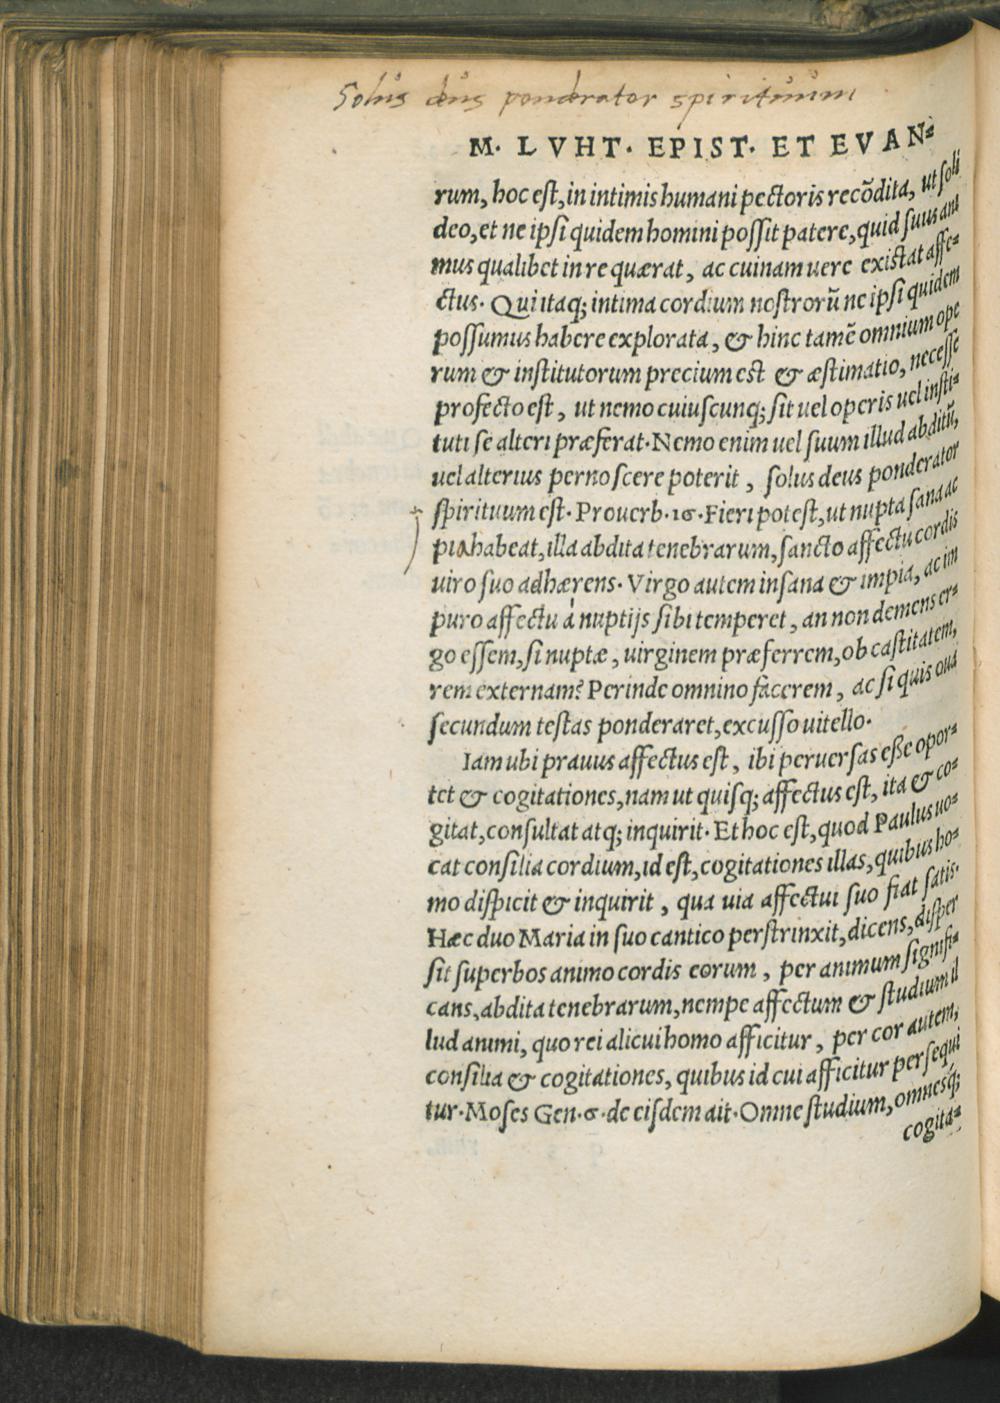 Solus deus ponderator spirituum
M. LVHT. EPIST. ET EVAN⸗
rum, hoc est, in intimis humani pectoris recõdita, ut soli
deo, et ne ipsi quidem homini possit patere, quid suus ani
mus qualibet in re quærat, ac cuinam uere existat affe⸗
ctus. Qui itaq; intima cordium nostrorũ ne ipsi quidem
possumus habere explorata, & hinc tamẽ omnium ope
rum & institutorum precium est & æstimatio, necesse
profecto est, ut nemo cuiuscunq; sit uel operis uel insti⸗
tuti se alteri præferat. Nemo enim uel suum illud abditũ,
uel alterius pernoscere poterit, solus deus ponderator
spirituum est. Prouerb. 16. Fieri potest, ut nupta sana ac
pia habeat, illa abdita tenebrarum, sancto affectu cordis
uiro suo adhærens. Virgo autem insana & impia, ac im
puro affectu à nuptijs sibi temperet, an non demens er⸗
go essem, si nuptæ, uirginem præferrem, ob castitatem,
rem externam? Perinde omnino facerem, ac si quis oua
secundum testas ponderaret, excusso uitello.
Iam ubi prauus affectus est, ibi peruersas eße opor⸗
tet & cogitationes, nam ut quisq; affectus est, ita & co⸗
gitat, consultat atq; inquirit. Et hoc est, quod Paulus uo⸗
cat consilia cordium, id est, cogitationes illas, quibus ho⸗
mo dispicit & inquirit, qua uia affectui suo fiat satis.
Hæc duo Maria in suo cantico perstrinxit, dicens, disper
sit superbos animo cordis eorum, per animum signifi⸗
cans, abdita tenebrarum, nempe affectum & studium il
lud animi, quo rei alicui homo afficitur, per cor autem,
consilia & cogitationes, quibus id cui afficitur persequi
tur. Moses Gen. 6. de eisdem ait. Omne studium, omnesq́;
cogita⸗